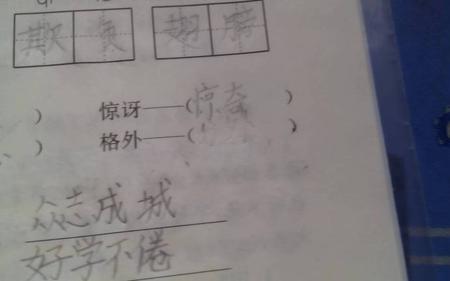 欺 负 翅 膀
) 惊讶——(惊奇)
) 格外——( )
众志成城
好学不倦